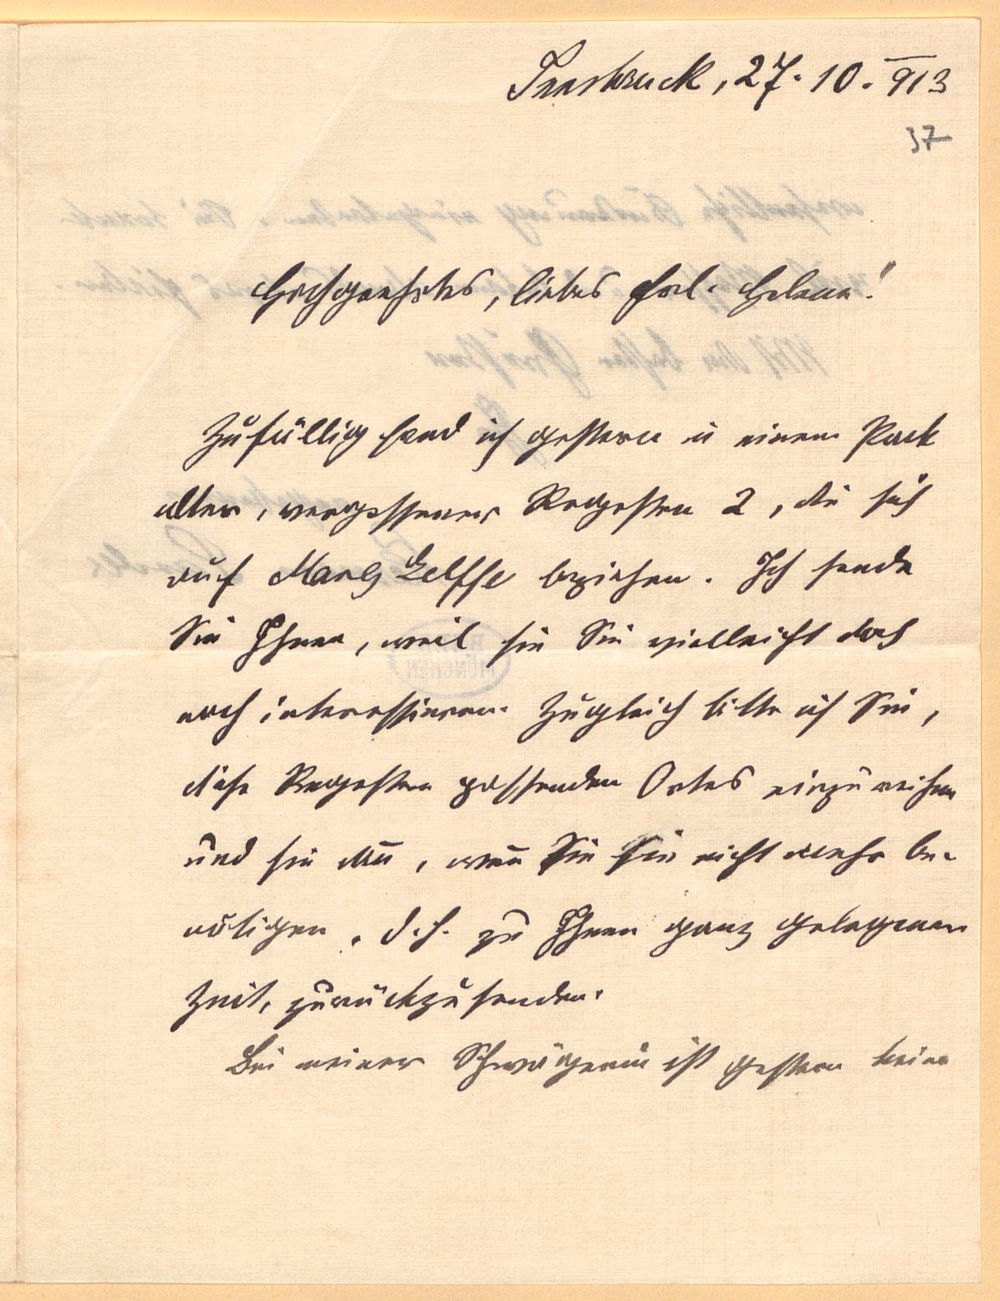 Innsbruck, 27. 10. 913
37
Hochgeehrtes, liebes Frl. Helene!
Zufällig fand ich gestern in einem Pack
alter, vergessener Regesten 2, die sich
auf Marx beziehen. Ich sende
Sie Ihnen, weil sie Sie vielleicht doch
noch interessieren. Zugleich bitte ich Sie,
diese Regesten passenden Ortes einzureihen
und sie dann, wenn Sie sie nicht mehr be-
nötigen, d. h. zu Ihnen ganz gelegener
Zeit, zurückzusenden.
Bei meiner Schwägerin ist gestern keine